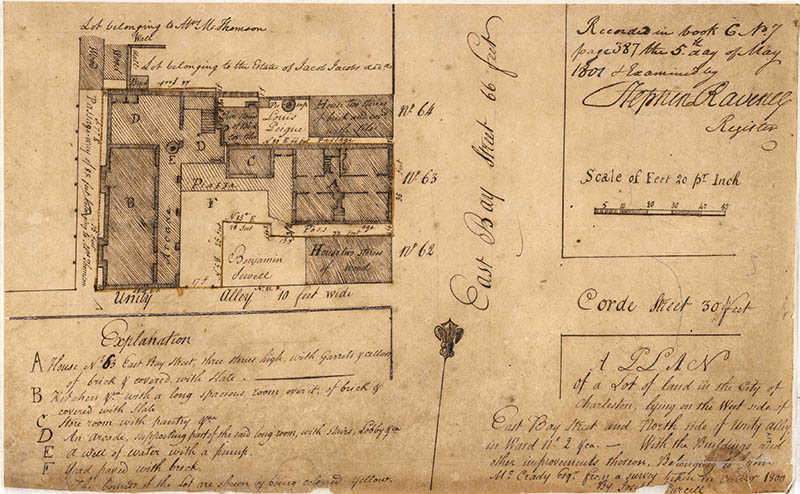 Lot belonging to Mrs. M. Thomson.
Wall
Lot belonging to the Estate of Jacob Jacobs
Recorded in book G No. 7
page 387 the 5th day of May
1801 & Examined by
Stephen Ravenel
Register
Scale of Feet 20 pr. Inch
5 10 20 30 40 50
Corde Street 30 feet
East Bay Street 66 feet
No. 64
No. 63
No. 62
Passage way of
D
D
E
B
C
F
Piazza
Arcade
Louis
House two stories
of brick
Pass age
Benjamin
Sewell
House two stories
of wood
17 f.
Unity Alley 10 feet wide
Explanation
A House No. 63 East Bay Street, three stories high, with Garrets & cellars
of brick & covered with Slate.
B Kitchen &ca. with a long spacious room over it, of brick &
covered with Slate
C Store room with pantry &ca.
D An Arcade, supporting part of the said long room, with Stairs, Lobby &ca.
E A well of water with a pump.
F Yard paved with brick.
The bounds of the Lot are shewn by being coloured yellow.
A PLAN
of a Lot of land in the City of
Charleston, lying on the West side of
East Bay Street and North side of Unity alley
in Ward No. 2 &ca. — With the Buildings and
other improvements thereon. Belonging to John
McCrady Esq. from a survey taken in 1800
By Purcell